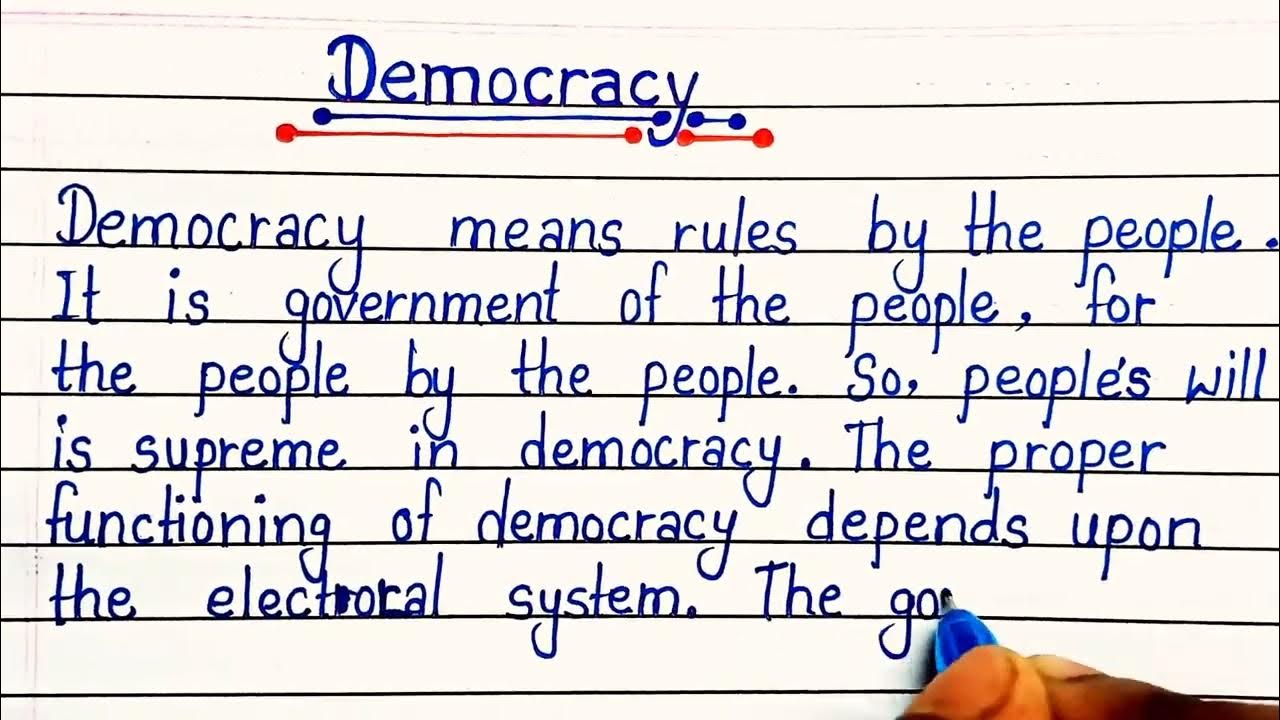 Democracy
Democracy means rules by the people.
It is government of the people, for
the people by the people. So, people's will
is supreme in democracy. The proper
functioning of democracy depends upon
the electroral system. The go